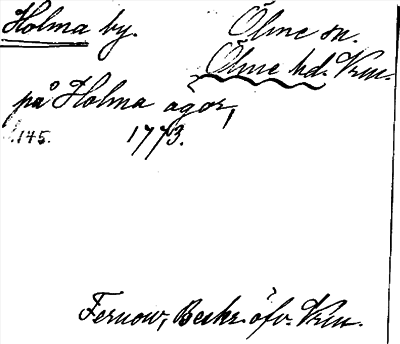 Holma by. Ölme sn.
Ölme hd. Vrm.
på Holma ägor,
s. 145. 1773.
Fernow, Beskr. öfv. Vrm.